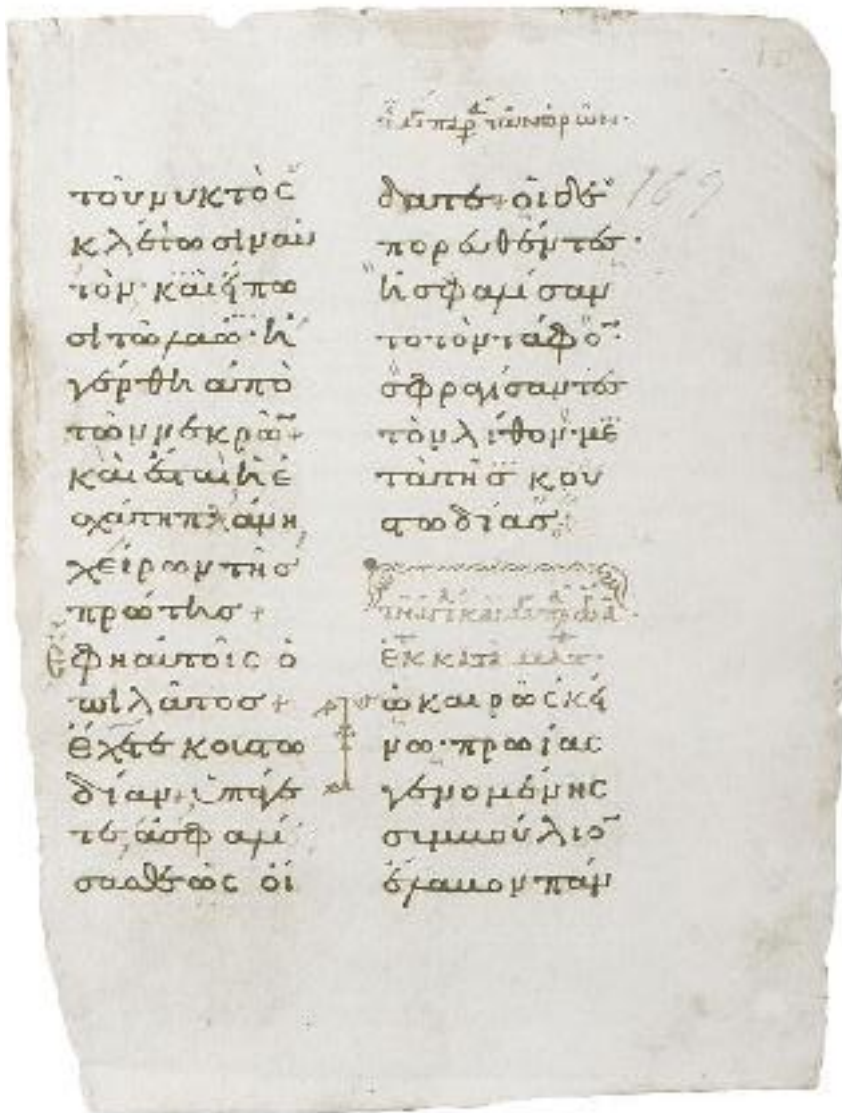 τοῦ νυκτὸς
κλέψωσιν αυ
τὸν· καὶ εἴπω
σι τῶ λαῶ· ἠ
γέρθη ἀπὸ
τῶν νεκρῶν+
καὶ ἔσται ἡ ἐ
σχάτη πλάνη
χείρων τῆς
πρώτης+
ἔφη αὐτοῖς ὁ
πιλάτος+
ἔχετε κουστω
δίαν+ ὑπάγε
τε, ἀσφαλί
σασθε ὡς οἴ
τῶν ὡρῶν·
169
δατε+ οἱ δὲ
πορευθέντες·
ἠσφαλίσαν
το τὸν τάφον·
σφραγίσαντες
τὸν λίθον· με
τὰ τῆς κου
στωδίας+
ἐκ κατὰ ματθ·
τῶ καιρῶ ἐκεί
νω· πρωΐας
γενομένης
συμβούλιον
ἔλαβον πάν